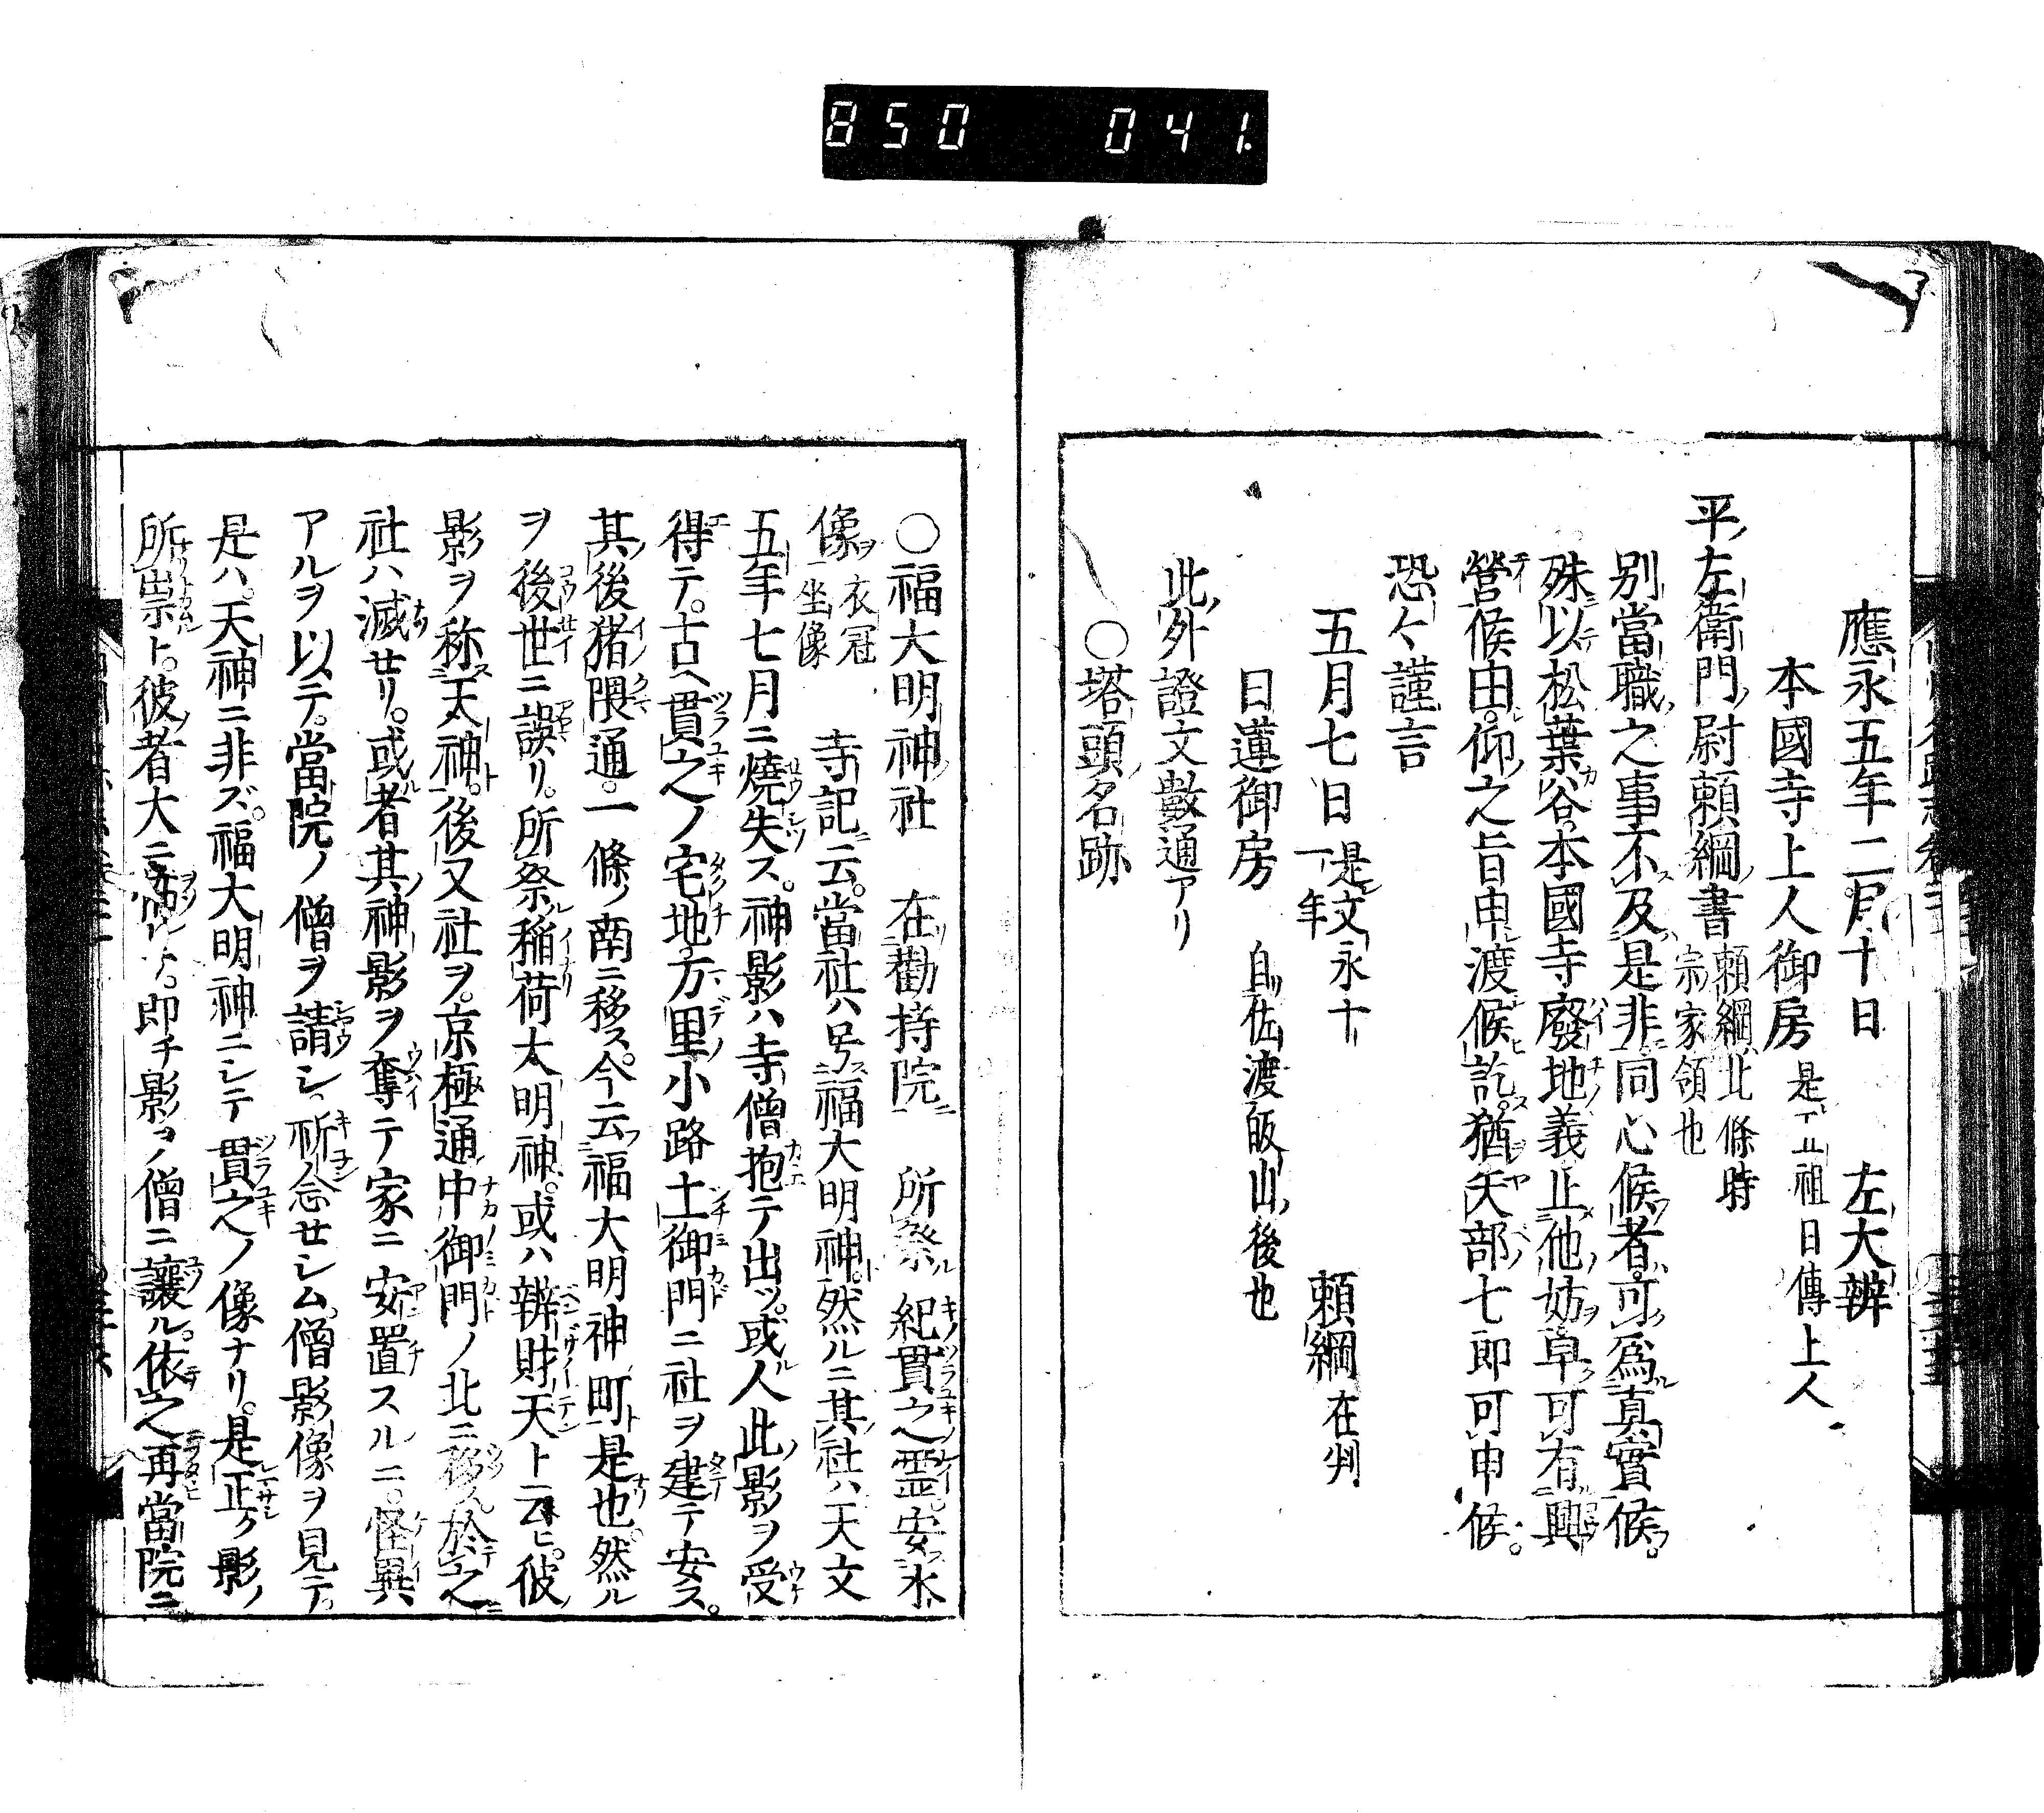 850 041.
應永五年二月十日 左大辨
本國寺上人御房 是祖日傳上人
平左衛門尉頼綱書 頼綱北條時宗家領也
別當職之事不及是非同心候者可爲真實候。
殊以松葉谷本國寺廢地義止他妨早可有興
營候由仰之旨申渡候訖猶矢部七郎可申候。
恐々謹言
五月七日 是文永十一年 頼綱 在判
日蓮御房 自佐渡皈山後也
此外證文數通アリ
○塔頭名跡
○福大明神社 在勸持院 所祭紀貫之霊。安木
像 衣冠坐像 寺記云。當社ハ号福大明神。然ルニ其社ハ天文
五年七月ニ燒失ス。神影ハ寺僧抱テ出ツ。或人此影ヲ受
得テ。古ヘ貫之ノ宅地方里小路土御門ニ社ヲ建テ安ス。
其後猪隈通。一條ノ南ニ移ス。今云福大明神町是也。然ル
ヲ後世ニ誤リ。所祭稲荷大明神。或ハ辨財天ト云ヒ。彼
影ヲ称天神。後又社ヲ。京極通中御門ノ北ニ移ス。於之
社ハ滅セリ。或者其神影ヲ奪テ家ニ安置スルニ。怪異
アルヲ以テ。當院ノ僧ヲ請シ。祈念セシム。僧影像ヲ見テ。
是ハ。天神ニ非ズ。福大明神ニシテ貫之ノ像ナリ。是正ク影ノ
所祟ト。彼者大ニ 即チ影ヲ僧ニ讓ル。依之再當院ニ